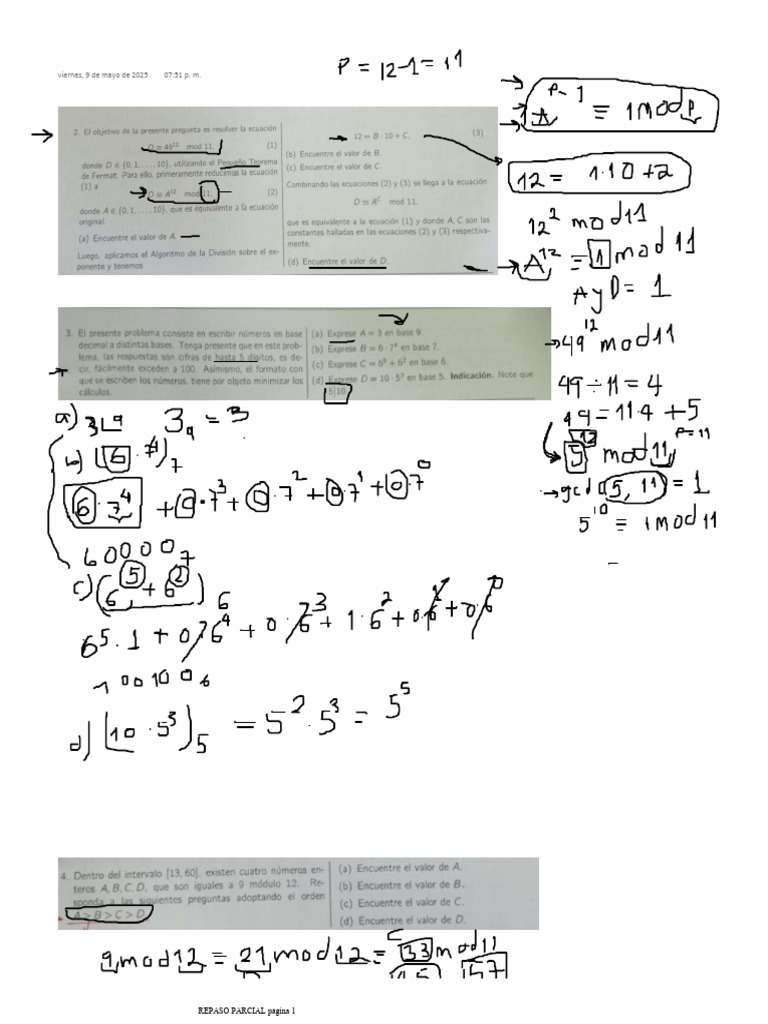 viernes, 9 de mayo de 2025 07:51 p. m.
P = 12-1 = 11
A^(P-1) ≡ 1 mod P
2. El objetivo de la presente pregunta es resolver la ecuación
D ≡ 49¹² mod 11, (1)
donde D ∈ {0, 1, . . . , 10}, utilizando el Pequeño Teorema
de Fermat. Para ello, primeramente reducimos la ecuación
(1) a
D ≡ A¹² mod 11, (2)
donde A ∈ {0, 1, . . . , 10}, que es equivalente a la ecuación
original.
(a) Encuentre el valor de A.
Luego, aplicamos el Algoritmo de la División sobre el ex-
ponente y tenemos
12 = B · 10 + C, (3)
(b) Encuentre el valor de B.
(c) Encuentre el valor de C.
Combinando las ecuaciones (2) y (3) se llega a la ecuación
D ≡ A^C mod 11,
que es equivalente a la ecuación (1) y donde A, C son las
constantes halladas en las ecuaciones (2) y (3) respectiva-
mente.
(d) Encuentre el valor de D.
12 = 1·10+2
12² mod 11
A¹² ≡ 1 mod 11
A y D = 1
49¹² mod 11
49 ÷ 11 = 4
49 = 11·4 + 5
5¹² mod 11 P=11
gcd (5, 11) = 1
5¹⁰ ≡ 1 mod 11
3. El presente problema consiste en escribir números en base
decimal a distintas bases. Tenga presente que en este prob-
lema, las respuestas son cifras de hasta 5 dígitos, es de-
cir, fácilmente exceden a 100. Asimismo, el formato con
que se escriben los números, tiene por objeto minimizar los
cálculos.
(a) Exprese A = 3 en base 9.
(b) Exprese B = 6 · 7⁴ en base 7.
(c) Exprese C = 6⁵ + 6² en base 6.
(d) Exprese D = 10 · 5³ en base 5. Indicación. Note que
5|10.
a) 3 9 3₉ = 3
b) (6 · 7⁴)₇
6 · 7⁴ + 0·7³ + 0·7² + 0·7¹ + 0·7⁰
60000₇
c) (6⁵ + 6²)₆
6⁵·1 + 0·6⁴ + 0·6³ + 1·6² + 0·6¹ + 0·6⁰
100100₆
d) (10 · 5³)₅ = 5²·5³ = 5⁵
4. Dentro del intervalo [13, 60], existen cuatro números en-
teros A, B, C, D, que son iguales a 9 módulo 12. Re-
sponda a las siguientes preguntas adoptando el orden
A > B > C > D.
(a) Encuentre el valor de A.
(b) Encuentre el valor de B.
(c) Encuentre el valor de C.
(d) Encuentre el valor de D.
9 mod 12 ≡ 21 mod 12 ≡ 33 mod 11
C
D 45 57
REPASO PARCIAL página 1